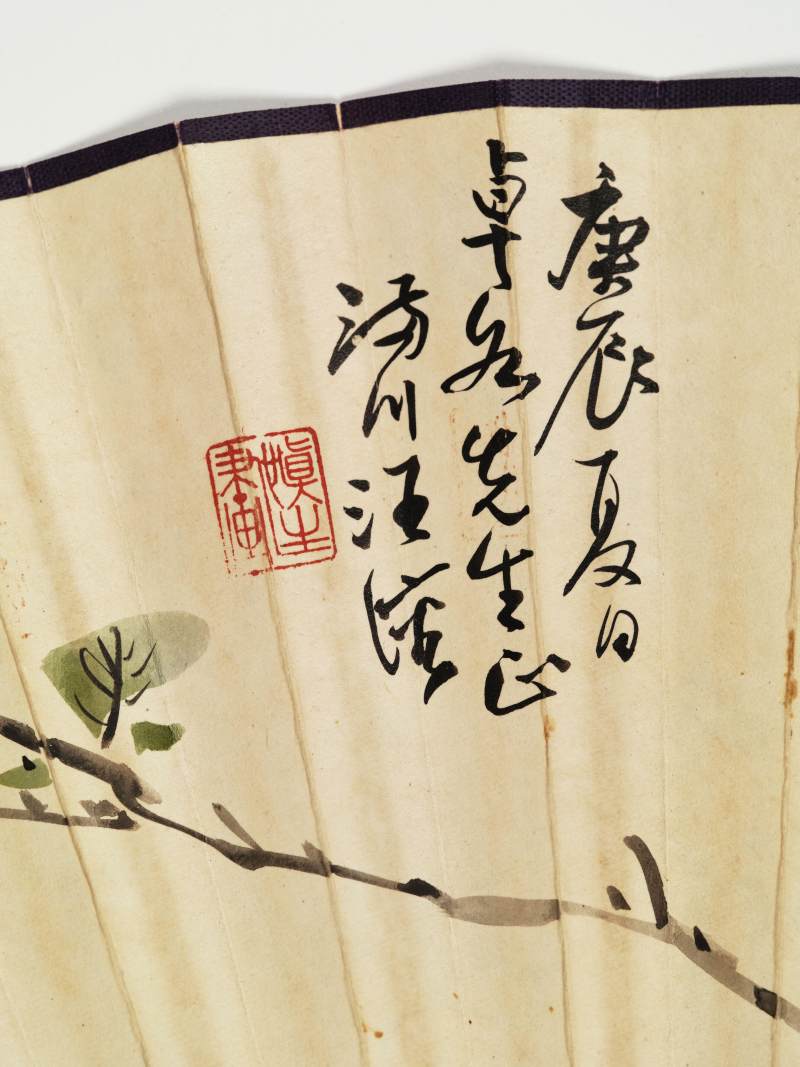 庚辰夏日
卓先生正
满川汪溶
慎生